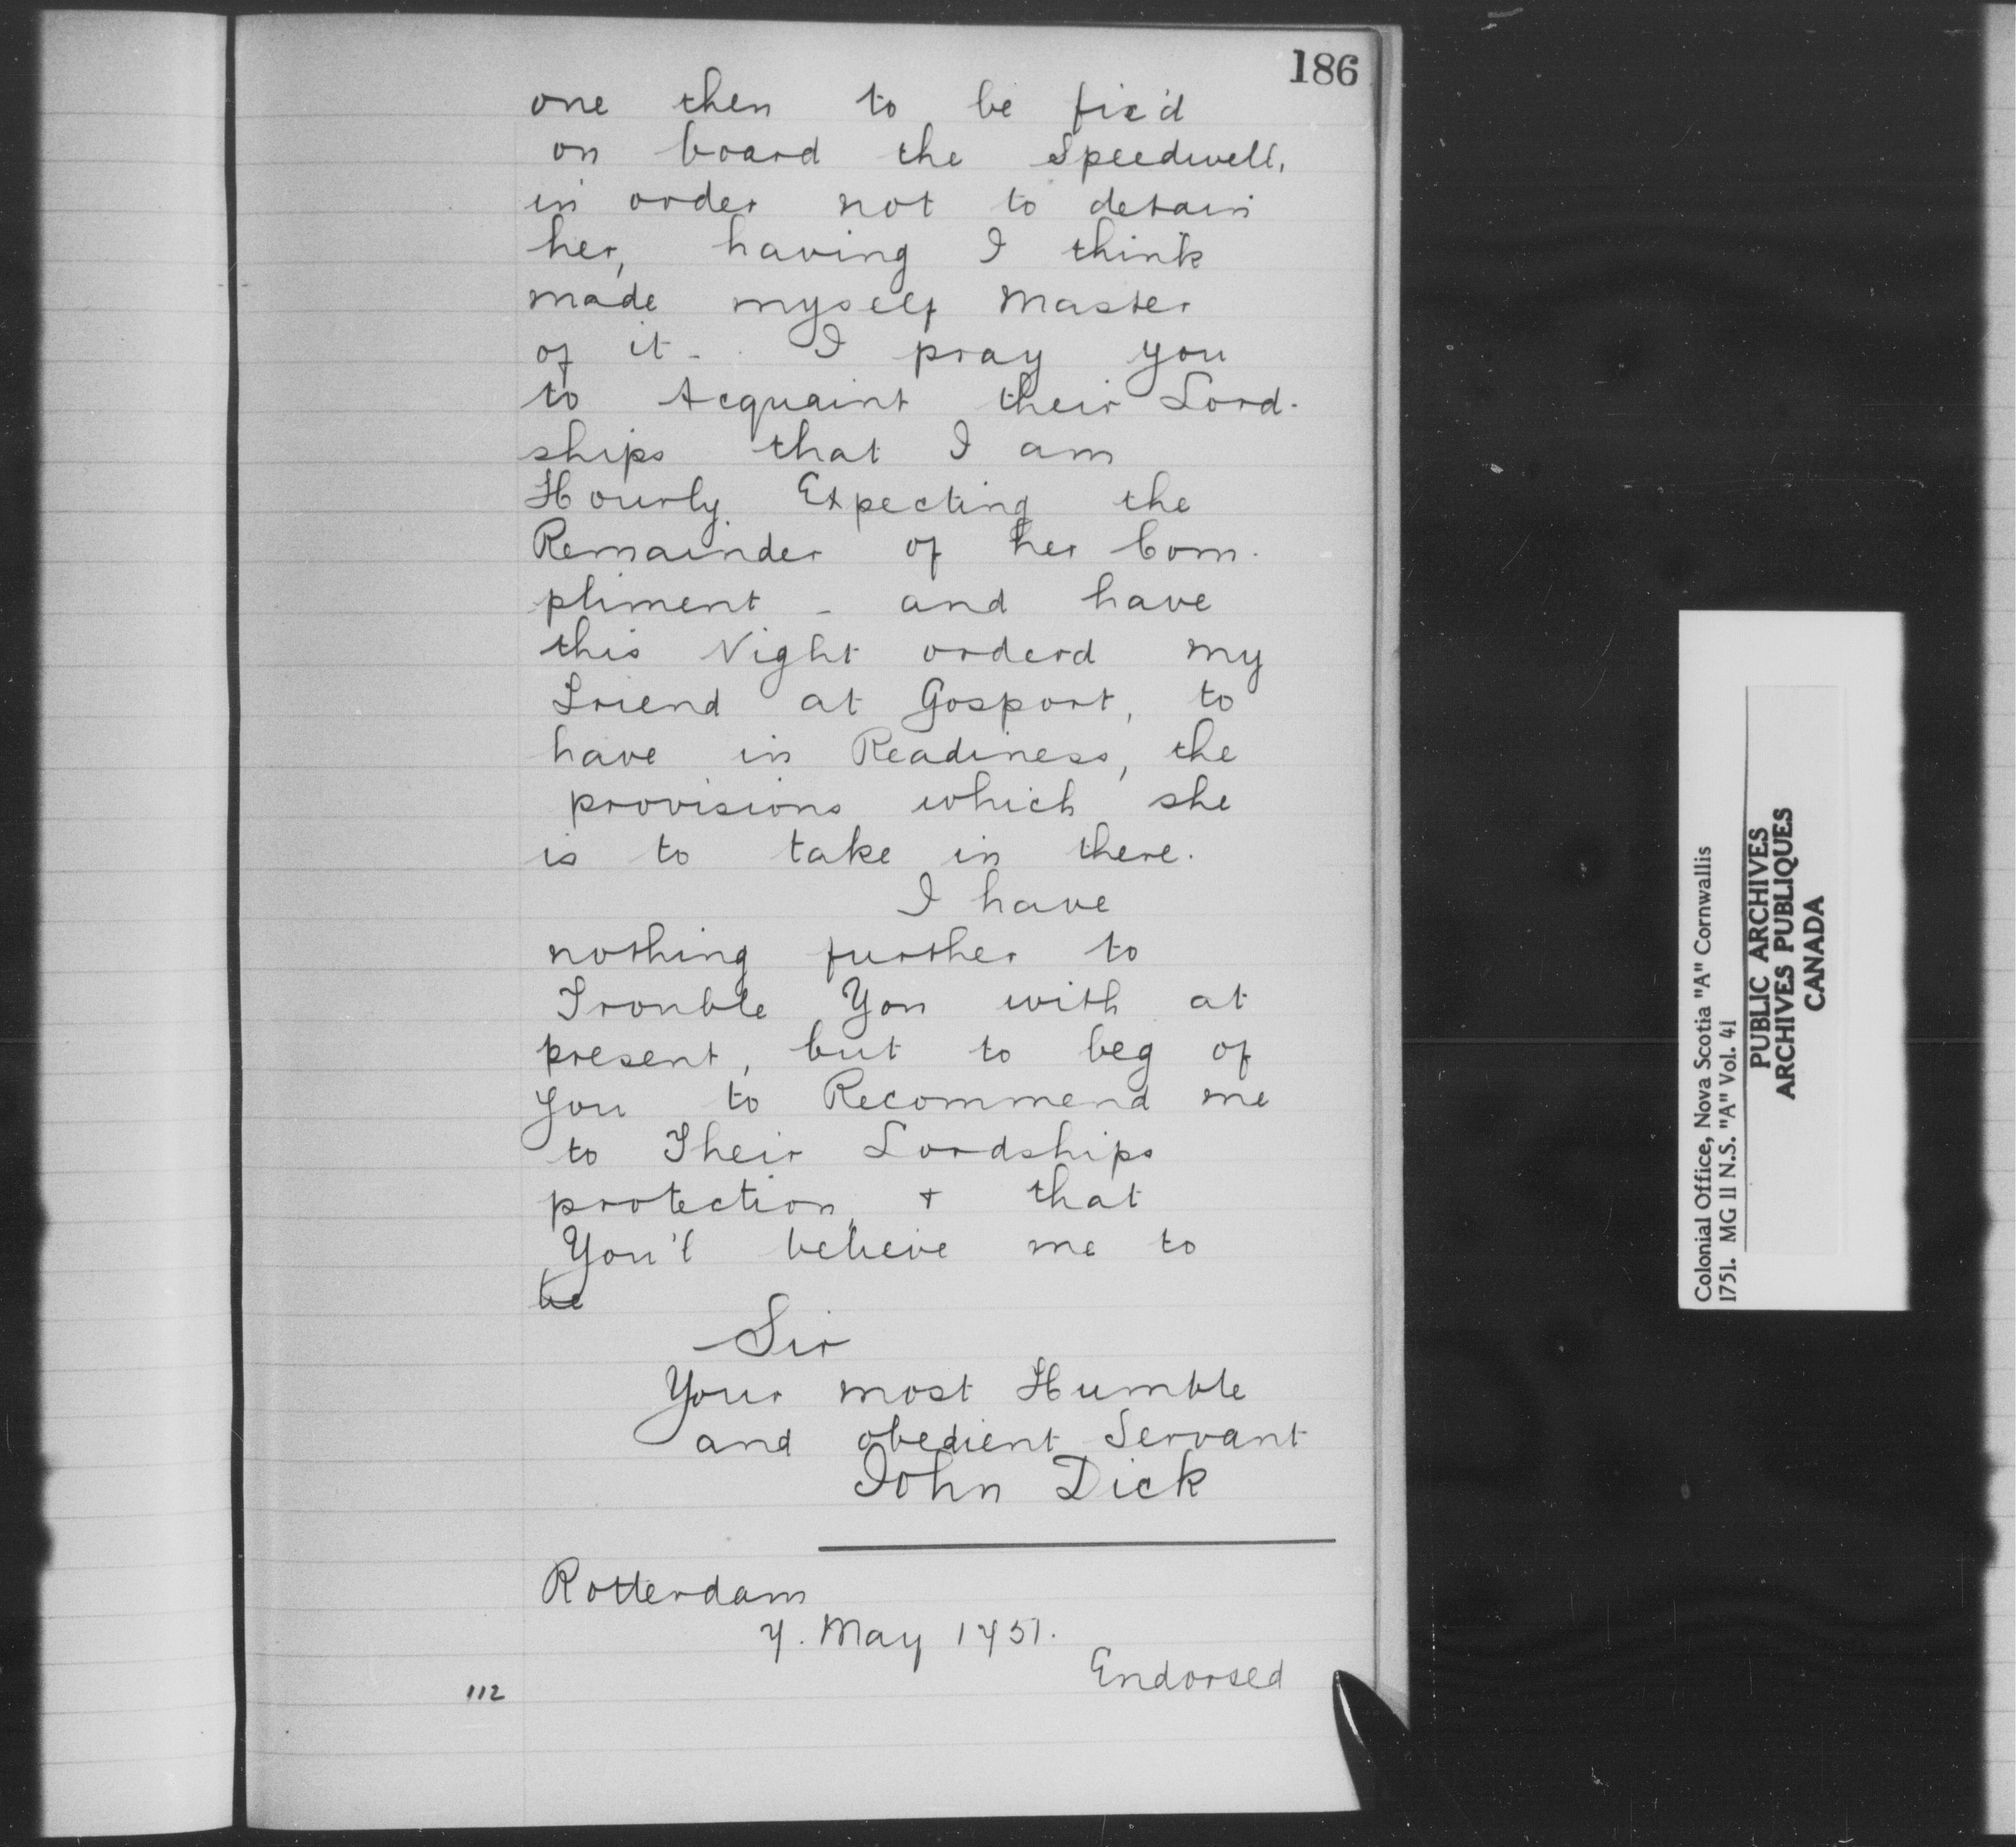 186
one then to be fix'd
on board the Speedwell,
in order not to detain
her, having I think
made myself Master
of it - I pray you
to Acquaint their Lord-
ships that I am
Hourly Expecting the
Remainder of her Com-
pliment - and have
this Night orderd my
Friend at Gosport, to
have in Readiness, the
provisions which she
is to take in there.
I have
nothing further to
Trouble You with at
present, but to beg of
you to Recommend me
to Their Lordships
protection, + that
You'l believe me to
be
Sir
Your most Humble
and obedient Servant
John Dick
Rotterdam
7. May 1751.
Endorsed
112
Colonial Office, Nova Scotia "A" Cornwallis
1751. MG 11 N.S. "A" Vol. 41
PUBLIC ARCHIVES
ARCHIVES PUBLIQUES
CANADA